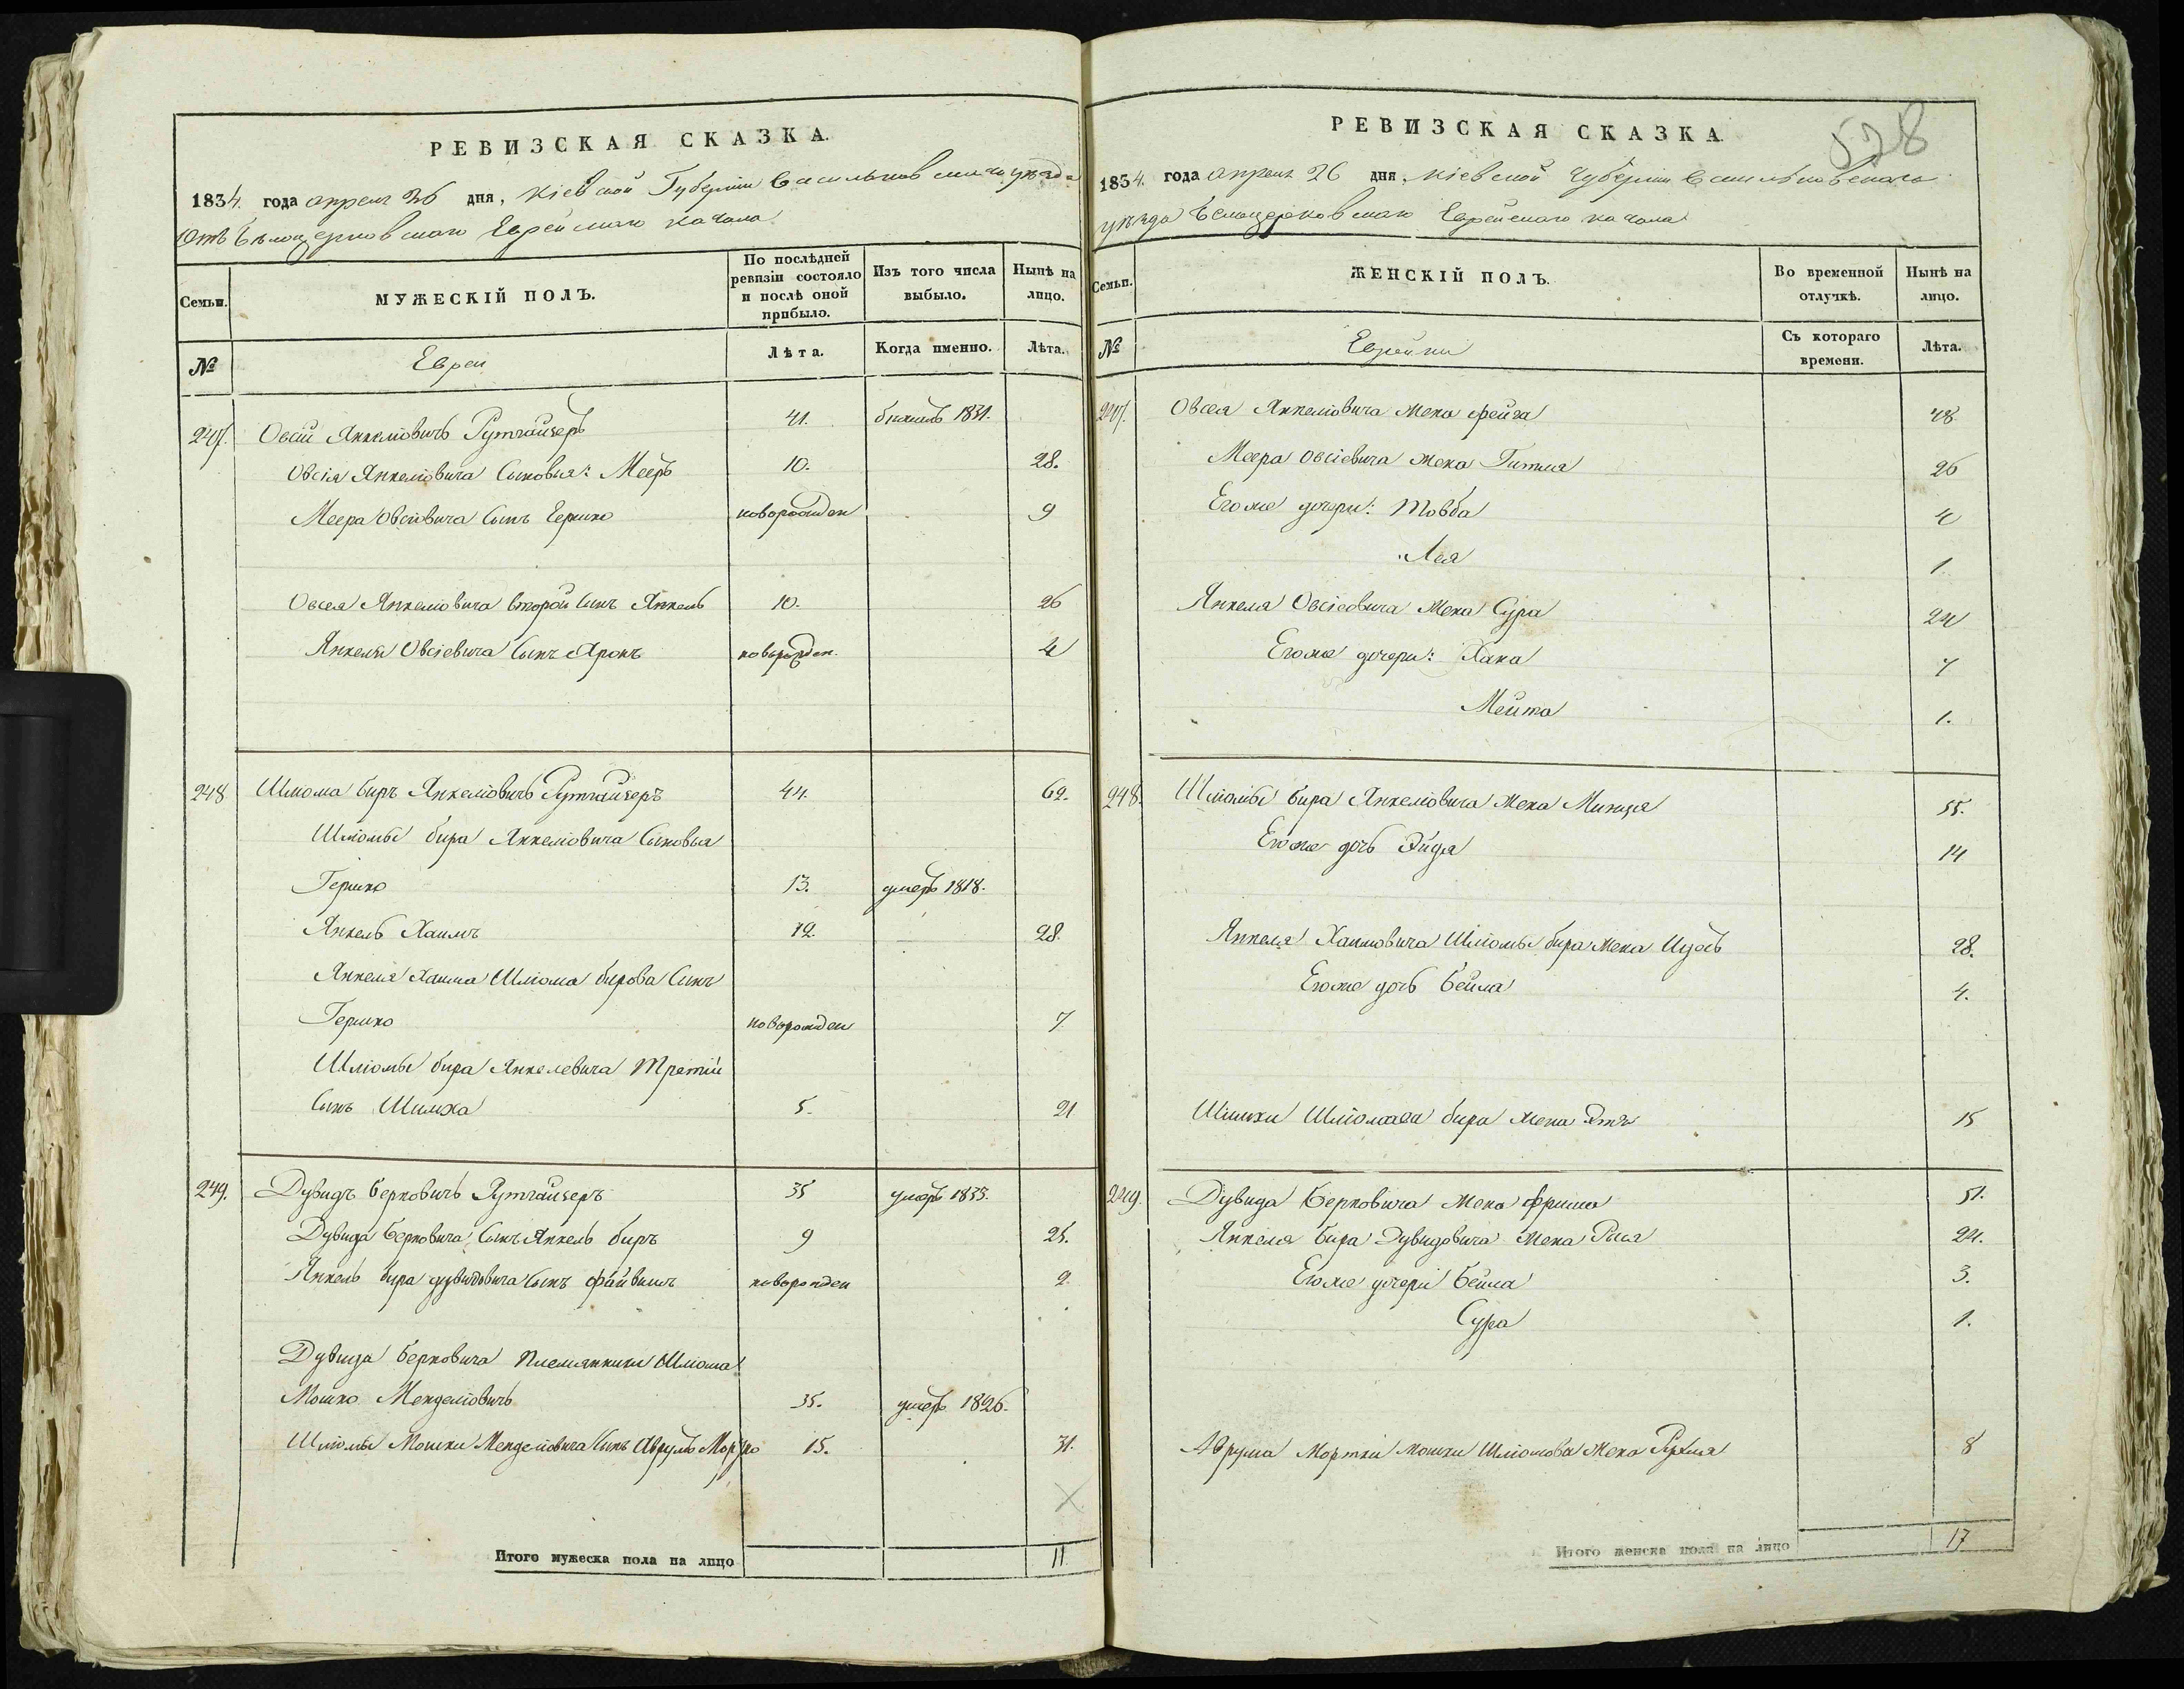 РЕВИЗСКАЯ СКАЗКА.
1834. года апреля 26 дня, Кіевской Губерніи Васильковскаго уезда
Отъ Белоцерковскаго Еврейскаго кагала
Семьи.
МУЖЕСКІЙ ПОЛЪ.
По послѣдней ревизіи состояло и послѣ оной прибыло.
Изъ того числа выбыло.
Нынѣ на лицо.
№
Евреи
Лѣта.
Когда именно.
Лѣта.
247. Овсій Янкеліовичъ Рутгайзеръ 41. 1831.
Овсія Янкеліовича Сыновья: Мееръ 10. 28.
Меера Овсіовича Сынъ Гершко новорожден 9
Овсея Янкеліовича второй сынъ Янкель 10. 26
Янкеля Овсіевича Сынъ Аронъ новорожден. 4
248 Шліома Биръ Янкеліовичъ Рутгайзеръ 44. 62.
Шліомы бира Янкеліовича Сыновья
Гершко 13. умеръ 1818.
Янкель Хаимъ 12. 28.
Янкеля Хаима Шліома бирова Сынъ
Гершко новорожден 7
Шліомы бира Янкелевича Третій
Сынъ Шимха 5. 21
249. Дувидъ Берковичъ Рутгайзеръ 35 умеръ 1833.
Дувида Берковича Сынъ Янкель биръ 9 25.
Янкель бира дувидовича Сынъ файвишъ новорожден 2.
Дувида Берковича племянники Шліома
Мошко Менделіовичъ 35. умеръ 1826.
Шліомы Мошки Менделіовича Сынъ Аврумъ Мортко 15. 31.
Итого мужеска пола на лицо 11.
528
РЕВИЗСКАЯ СКАЗКА
1834. года апреля 26 дня, Кіевской Губерніи Васильковскаго
уезда Белоцерковскаго Еврейскаго кагала
Семьи.
ЖЕНСКІЙ ПОЛЪ.
Во временной отлучкѣ.
Нынѣ на лицо.
№
Еврейки
Съ котораго времени.
Лѣта.
247. Овсея Янкеліовича жена Фейга 48
Меера Овсіевича жена Гитля 26
Его же дочери: Товба 4
Лея 1
Янкеля Овсіеовича жена Сура 24
Его же дочери: Хана 7
Мейта 1.
248. Шліомы бира Янкеліовича жена Минця 55.
Его же дочь Эйдля 14
Янкеля Хаимовича Шліомы бира жена 28.
Его же дочь Бейла 4.
Шимхи бира жена 15
249. Дувида Берковича жена Фрима 51.
Янкеля бира Дувидовича жена Рися 24.
Его же дочери Бейла 3.
Сура 1.
Аврума Мортки Мошки Шліомова жена Рухля 8
Итого женска пола на лицо 17